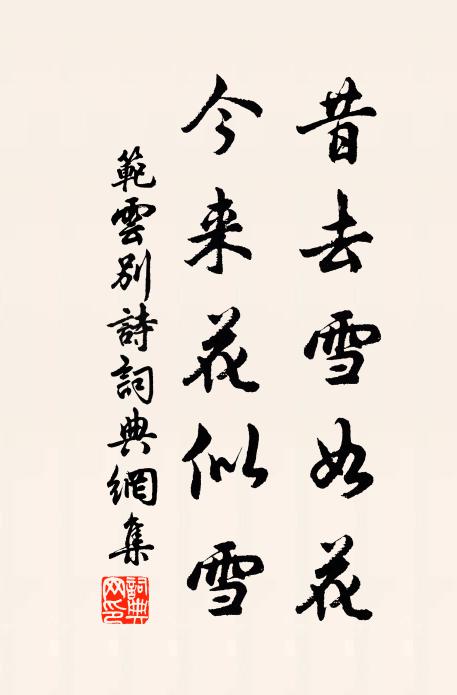 昔去雪如花
今来花似雪
範雲別詩詞典網集
詞典網印